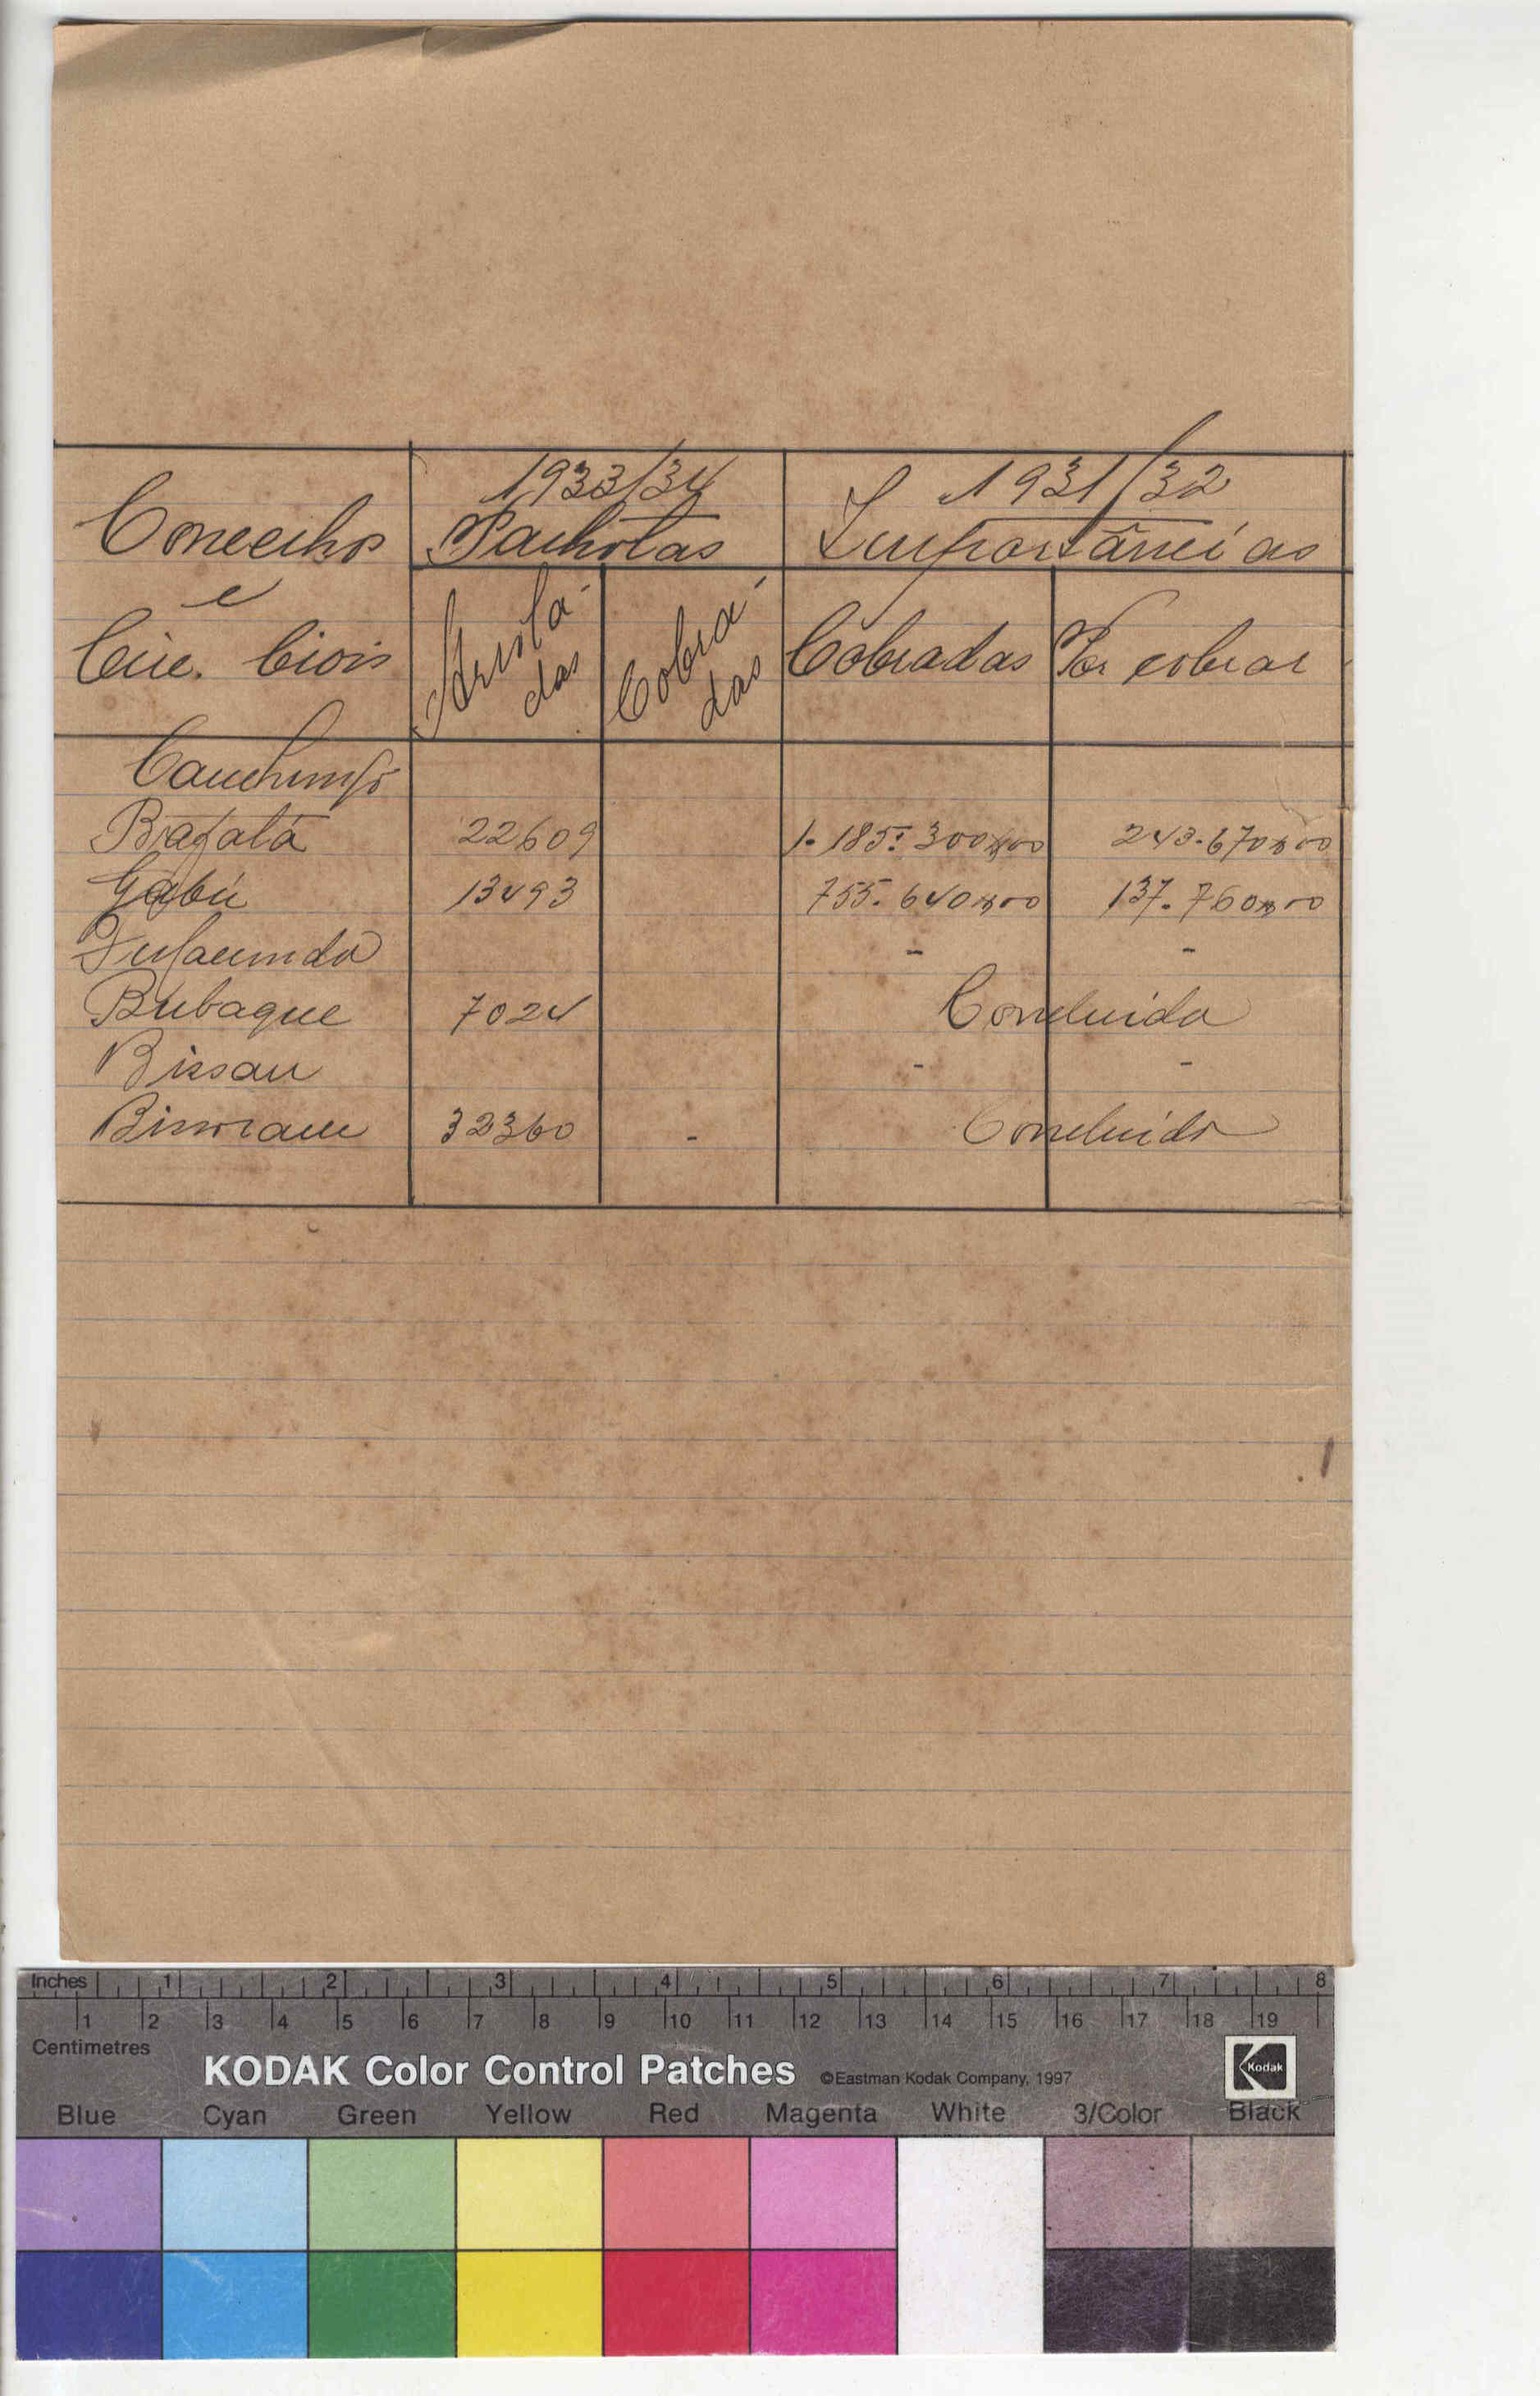 1933/34 1931/32
Concelhos Palhotas Importâncias
e
Circ. Civis Arrola- das Cobra- das Cobradas Por cobrar
Canchungo
Bafatá 22609 1.185:300$00 243.670$00
Gabú 13493 755.640$00 137.760$00
Fulacunda - -
Bubaque 7024 Concluída
Bissau - -
Bissoram 32360 - Concluído
Inches 1 2 3 4 5 6 7 8
1 2 3 4 5 6 7 8 9 10 11 12 13 14 15 16 17 18 19
Centimetres
KODAK Color Control Patches ©Eastman Kodak Company, 1997 Kodak
Blue Cyan Green Yellow Red Magenta White 3/Color Black